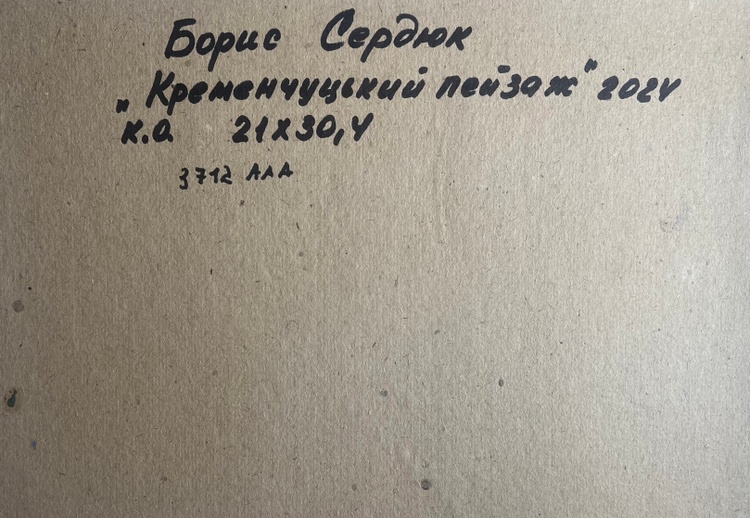 Борис Сердюк
„Кременчуцский пейзаж" 2024
К.О. 21х30,4
3712 ААА